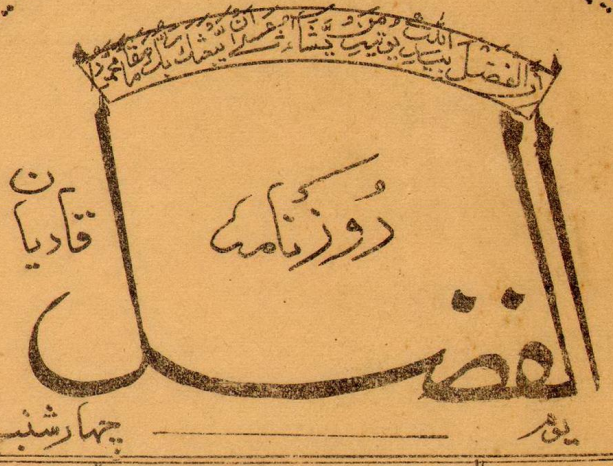 ان الفضل بيد الله يؤتيه من يشاء عسى ان يبعثك ربك مقاما محمودا
روزنامہ
قادیان
الفضل
یوم چہارشنبہ